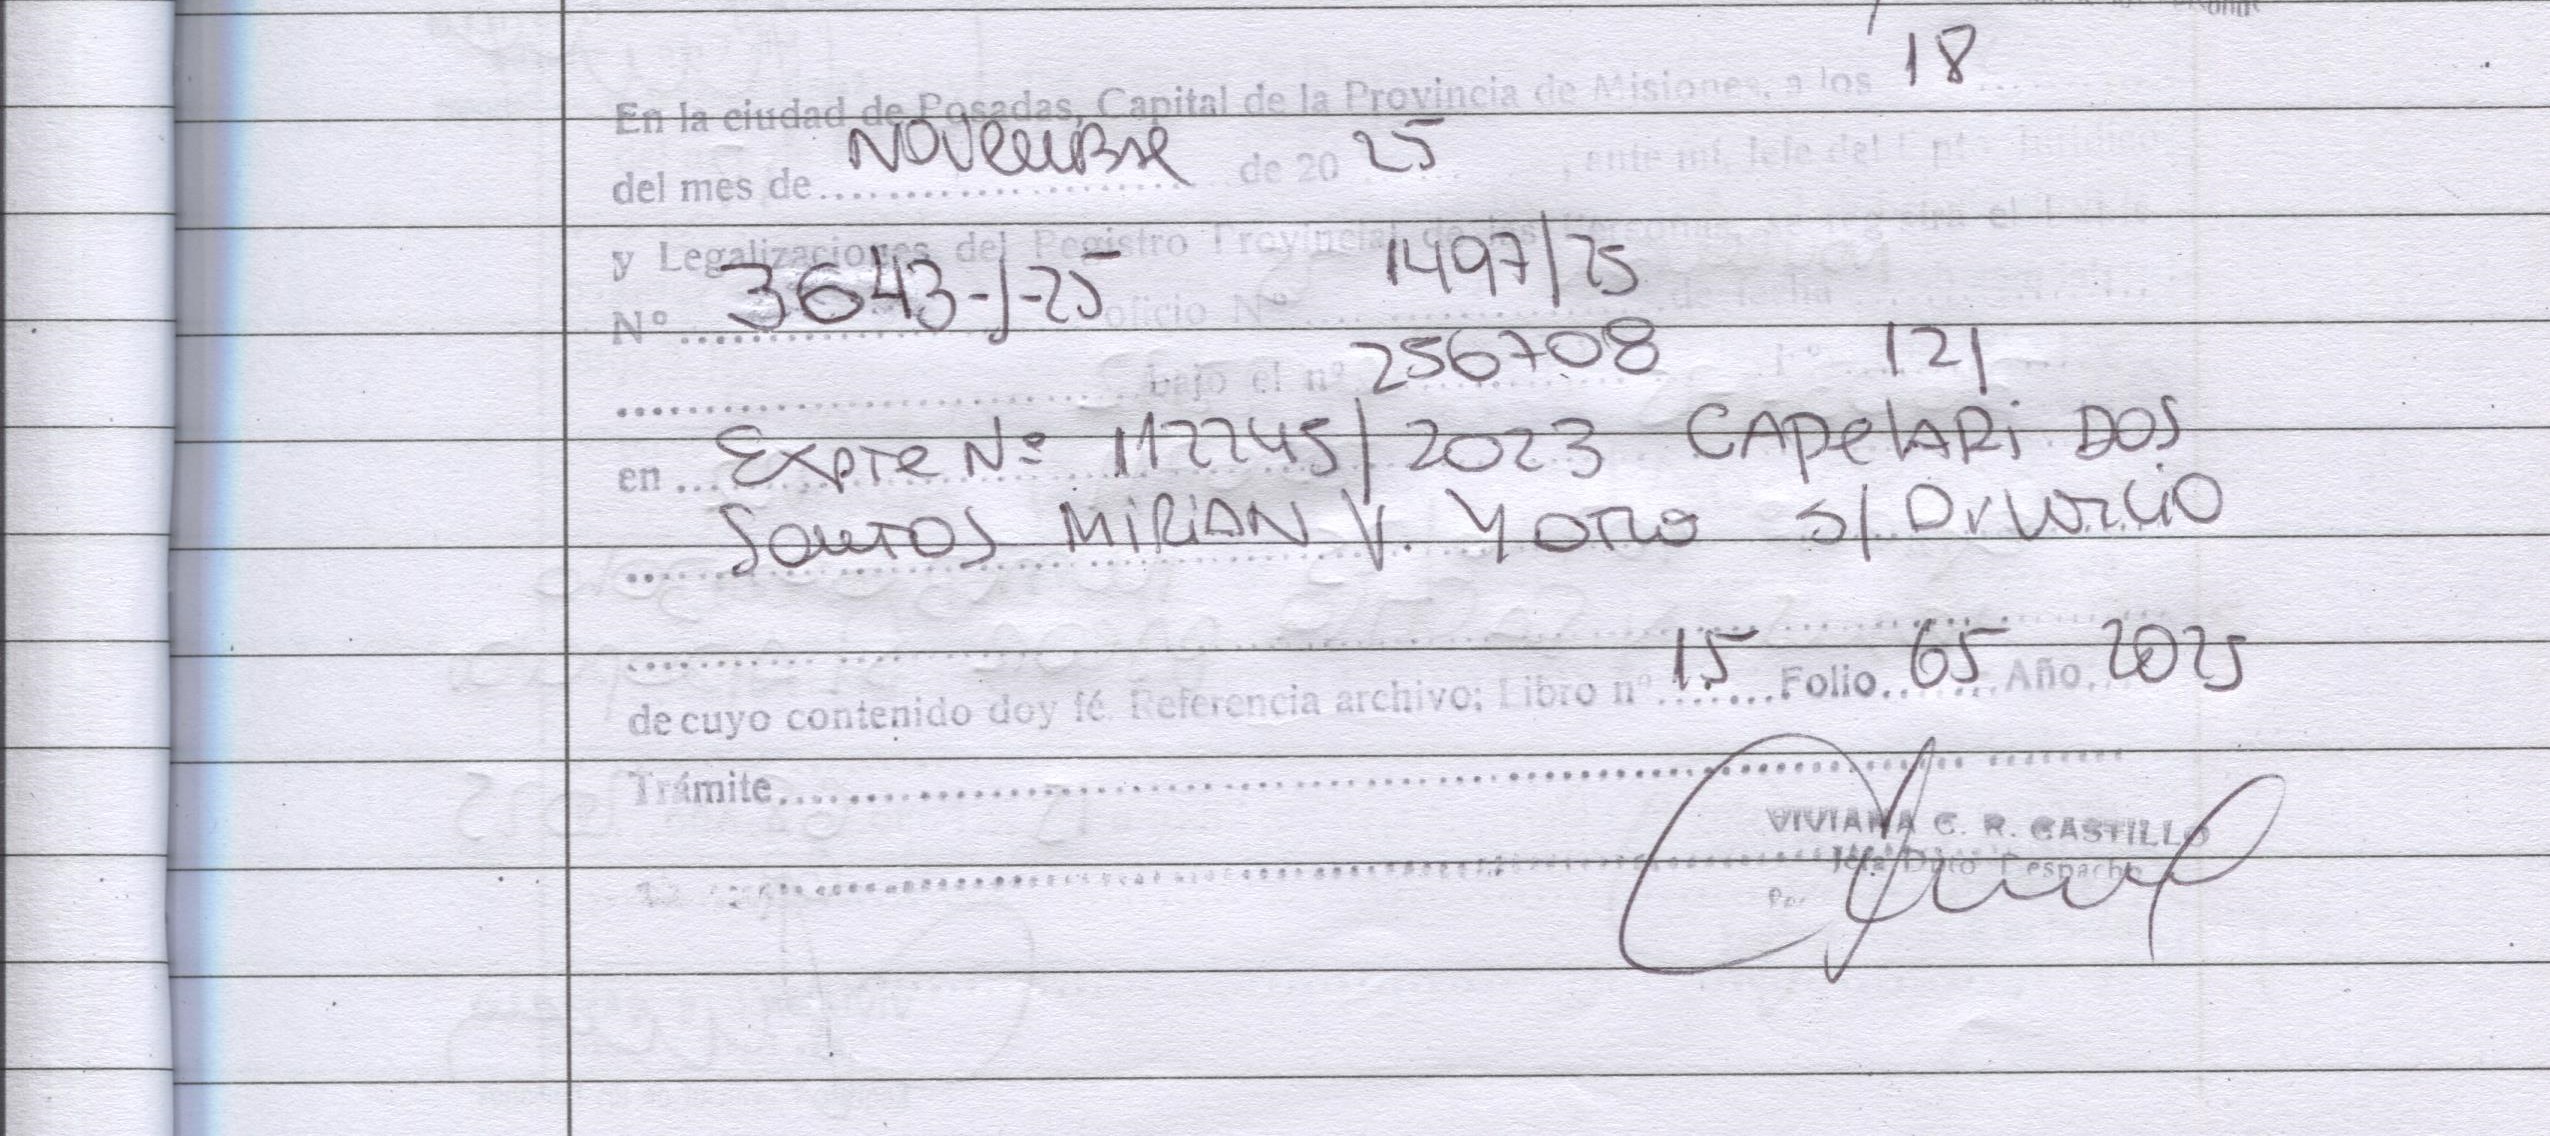 18
En la ciudad de Posadas, Capital de la Provincia de Misiones, a los
del mes de NOVIEMBRE de 20 25, ante mí, Jefe del
y Legalizaciones del Registro Provincial de las Personas, se registra el
Nº 3643-J-25 oficio Nº 1497/25 de fecha
bajo el nº 256708 Fº 121
en Expte Nº 112245/2023 CAPELARI DOS
SANTOS MIRIAN V. Y OTRO S/ DIVORCIO
de cuyo contenido doy fé. Referencia archivo; Libro nº 15 Folio 65 Año 2025
Trámite
VIVIANA C. R. CASTILLO
Jefa Dpto Despacho